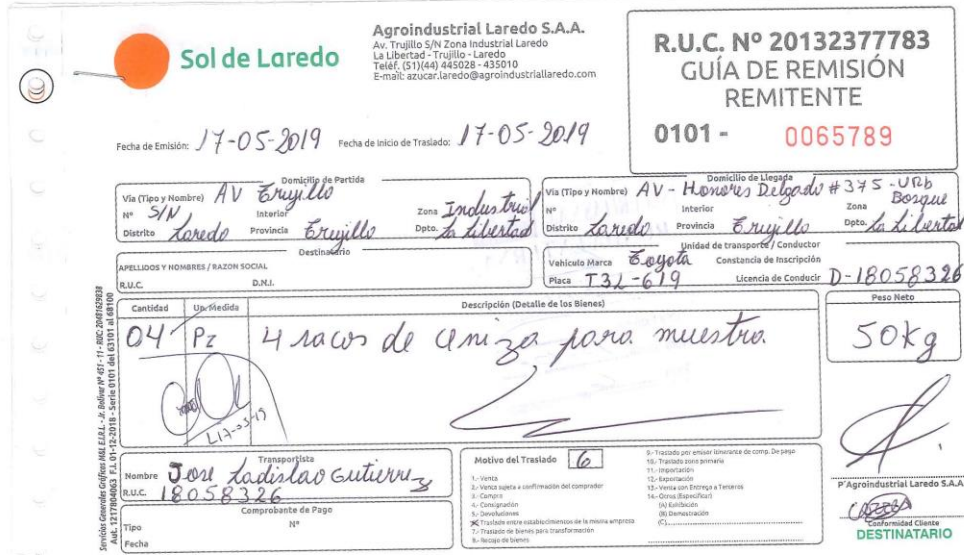 Sol de Laredo
Agroindustrial Laredo S.A.A.
Av. Trujillo S/N Zona Industrial Laredo
La Libertad - Trujillo - Laredo
Teléf. (51)(44) 445028 - 435010
E-mail: azucar.laredo@agroindustriallaredo.com
R.U.C. Nº 20132377783
GUÍA DE REMISIÓN
REMITENTE
0101 - 0065789
Fecha de Emisión: 17-05-2019 Fecha de Inicio de Traslado: 17-05-2019
Domicilio de Partida
Vía (Tipo y Nombre) AV Trujillo
Nº S/N Interior Zona Industrial
Distrito Laredo Provincia Trujillo Dpto. La Libertad
Domicilio de Llegada
Vía (Tipo y Nombre) AV - Honores Delgado #375 - URb Bosque
Nº Interior Zona
Distrito Laredo Provincia Trujillo Dpto. La Libertad
Destinatario
APELLIDOS Y NOMBRES / RAZON SOCIAL
R.U.C. D.N.I.
Unidad de transporte / Conductor
Vehiculo Marca Toyota Constancia de Inscripción
Placa T3L-619 Licencia de Conducir D-18058326
Cantidad Un. Medida Descripción (Detalle de los Bienes) Peso Neto
04 Pz 4 sacos de Ceniza para muestra. 50kg
Servicios Generales Gráficos M&L E.I.R.L. - Jr. Bolívar Nº 451 - 11 - RUC: 20481629838
Aut. 1217804063 F.I. 01-12-2018 - Serie 0101 del 63101 al 68100
Transportista
Nombre Jose Ladislao Gutierrez
R.U.C. 18058326
Comprobante de Pago
Tipo Nº
Fecha
Motivo del Traslado 6
1.- Venta
2.- Venta sujeta a confirmación del comprador
3.- Compra
4.- Consignación
5.- Devoluciones
Traslado entre establecimientos de la misma empresa
7.- Traslado de bienes para transformación
8.- Recojo de bienes
9.- Traslado por emisor itinerante de comp. De pago
10.- Traslado zona primaria
11.- Importación
12.- Exportación
13.- Venta con Entrega a Terceros
14.- Otros (Especificar)
(A) Exhibición
(B) Demostración
(C)
P'Agroindustrial Laredo S.A.A.
Conformidad Cliente
DESTINATARIO